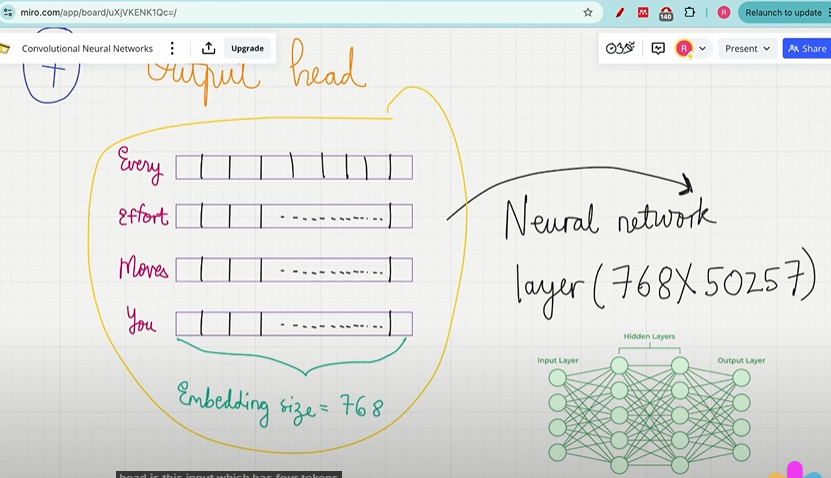 miro.com/app/board/uXjVKENK1Qc=/
140
R
Relaunch to update
Convolutional Neural Networks
Upgrade
R
Present
Share
Output head
Every
Effort
Moves
You
Embedding size = 768
Neural network
layer (768X50257)
Hidden Layers
Input Layer
Output Layer
head is this input which has four tokens